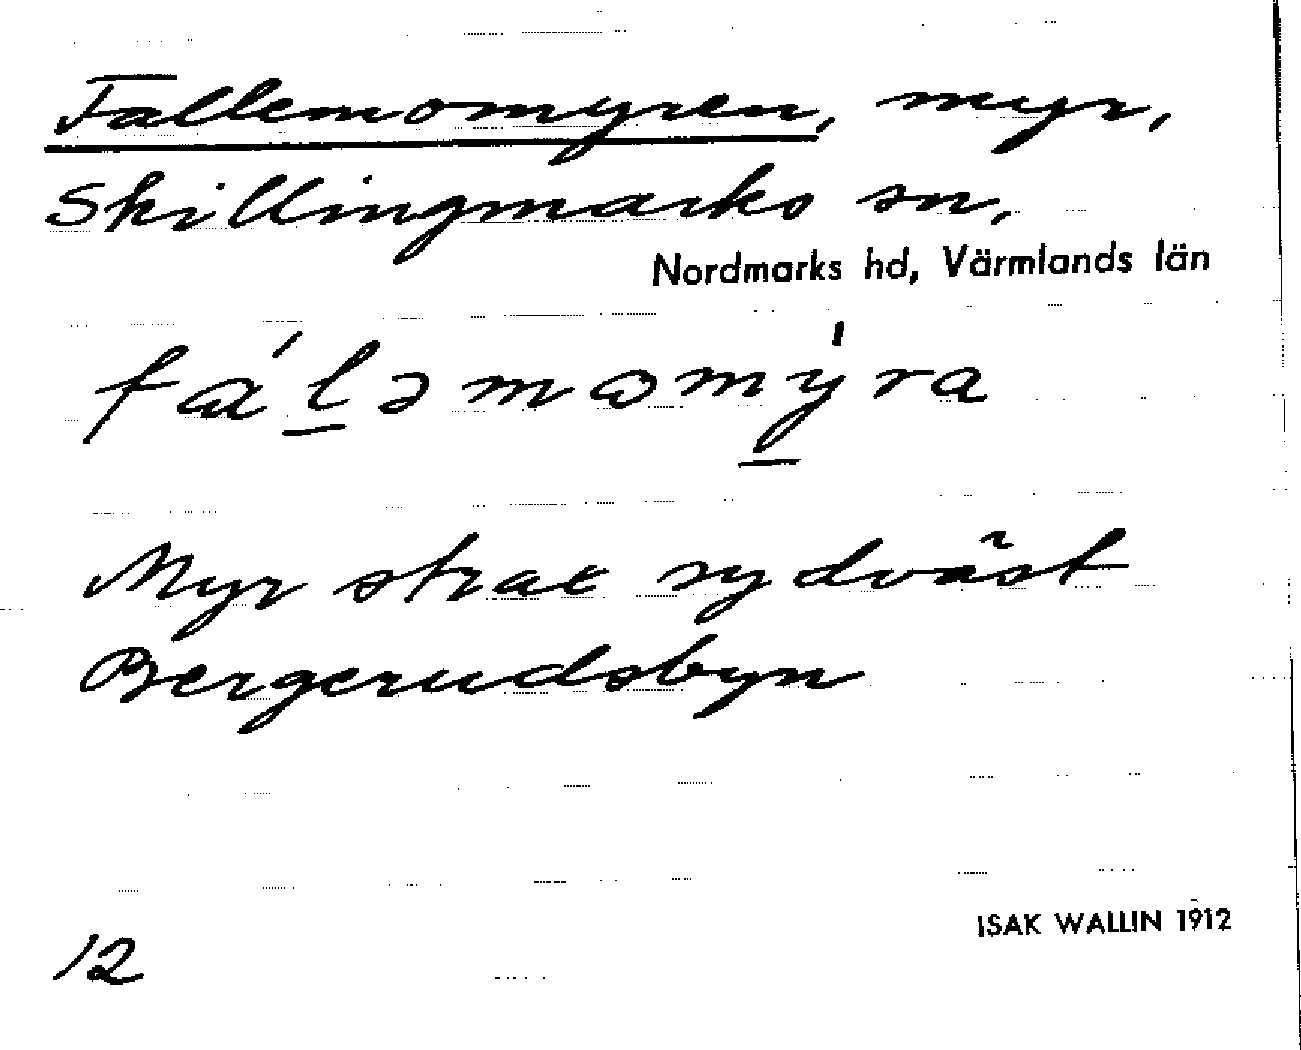 Fallemomyren, myr,
Skillingmarks sn,
Nordmarks hd, Värmlands län
fál̲əmωmy̲̍ra
Myr strax sydväst
Bergerudsbyn
ISAK WALLIN 1912
12